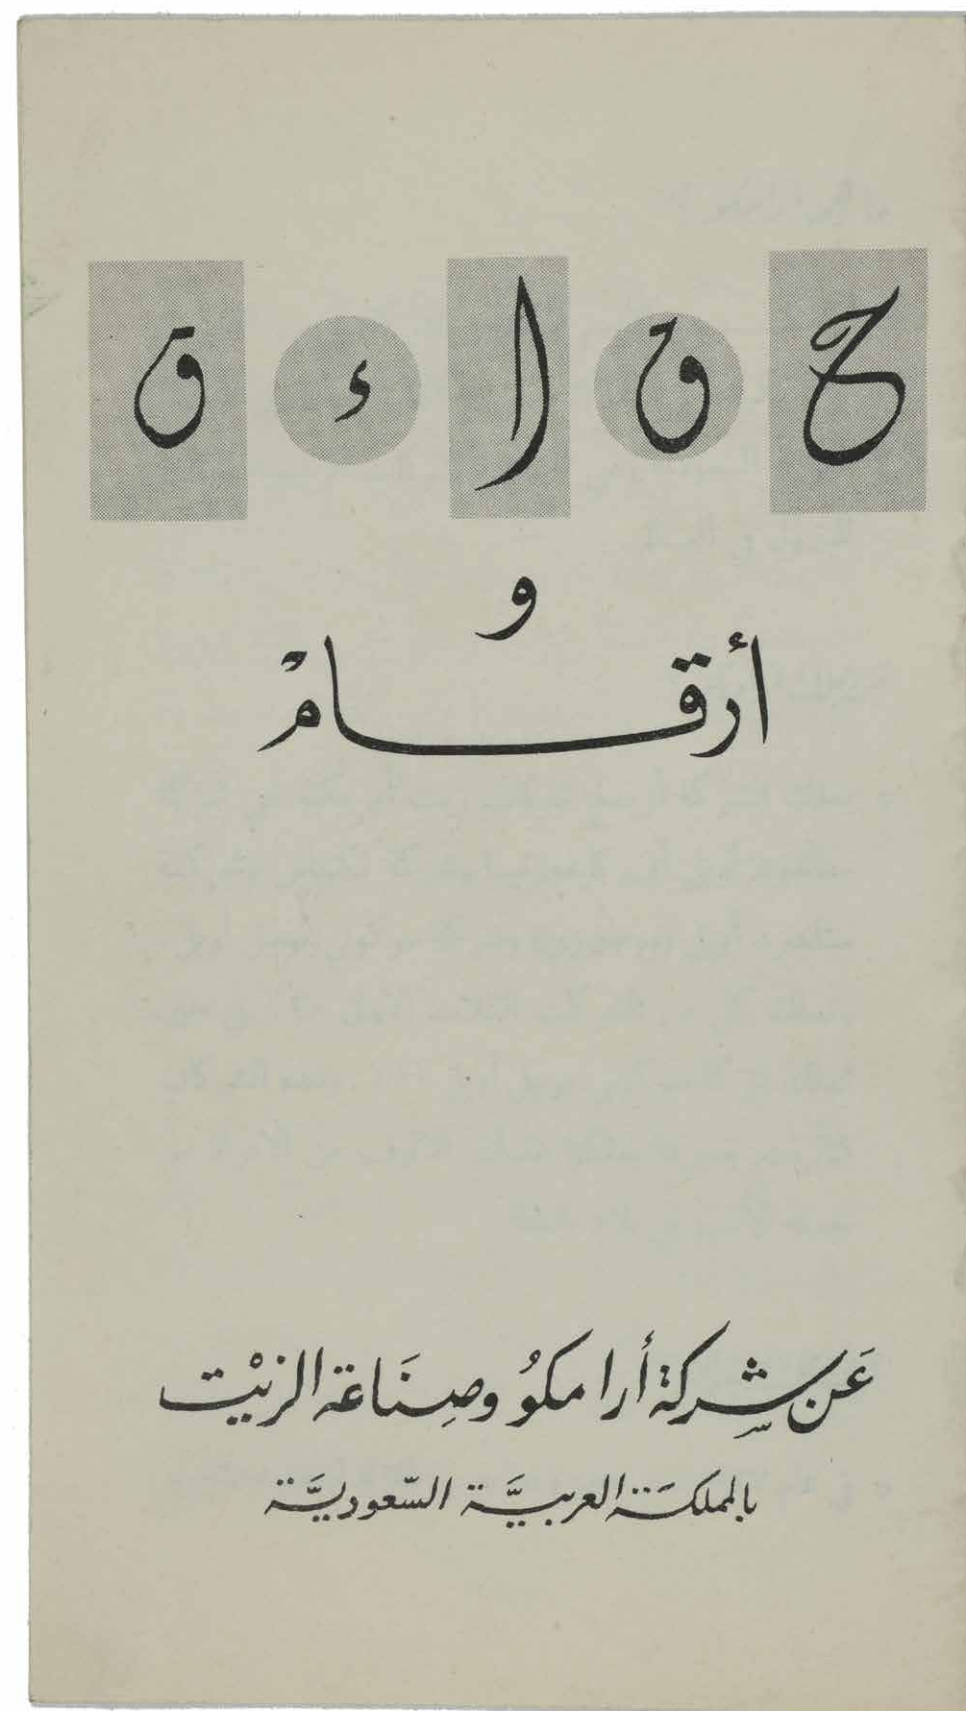 ح ق ا ء ق
و
أرقام
عَن شركة أرامكوُ وصِنَاعة الزيْت
بالمملكَة العربيَّة السّعوديَّة